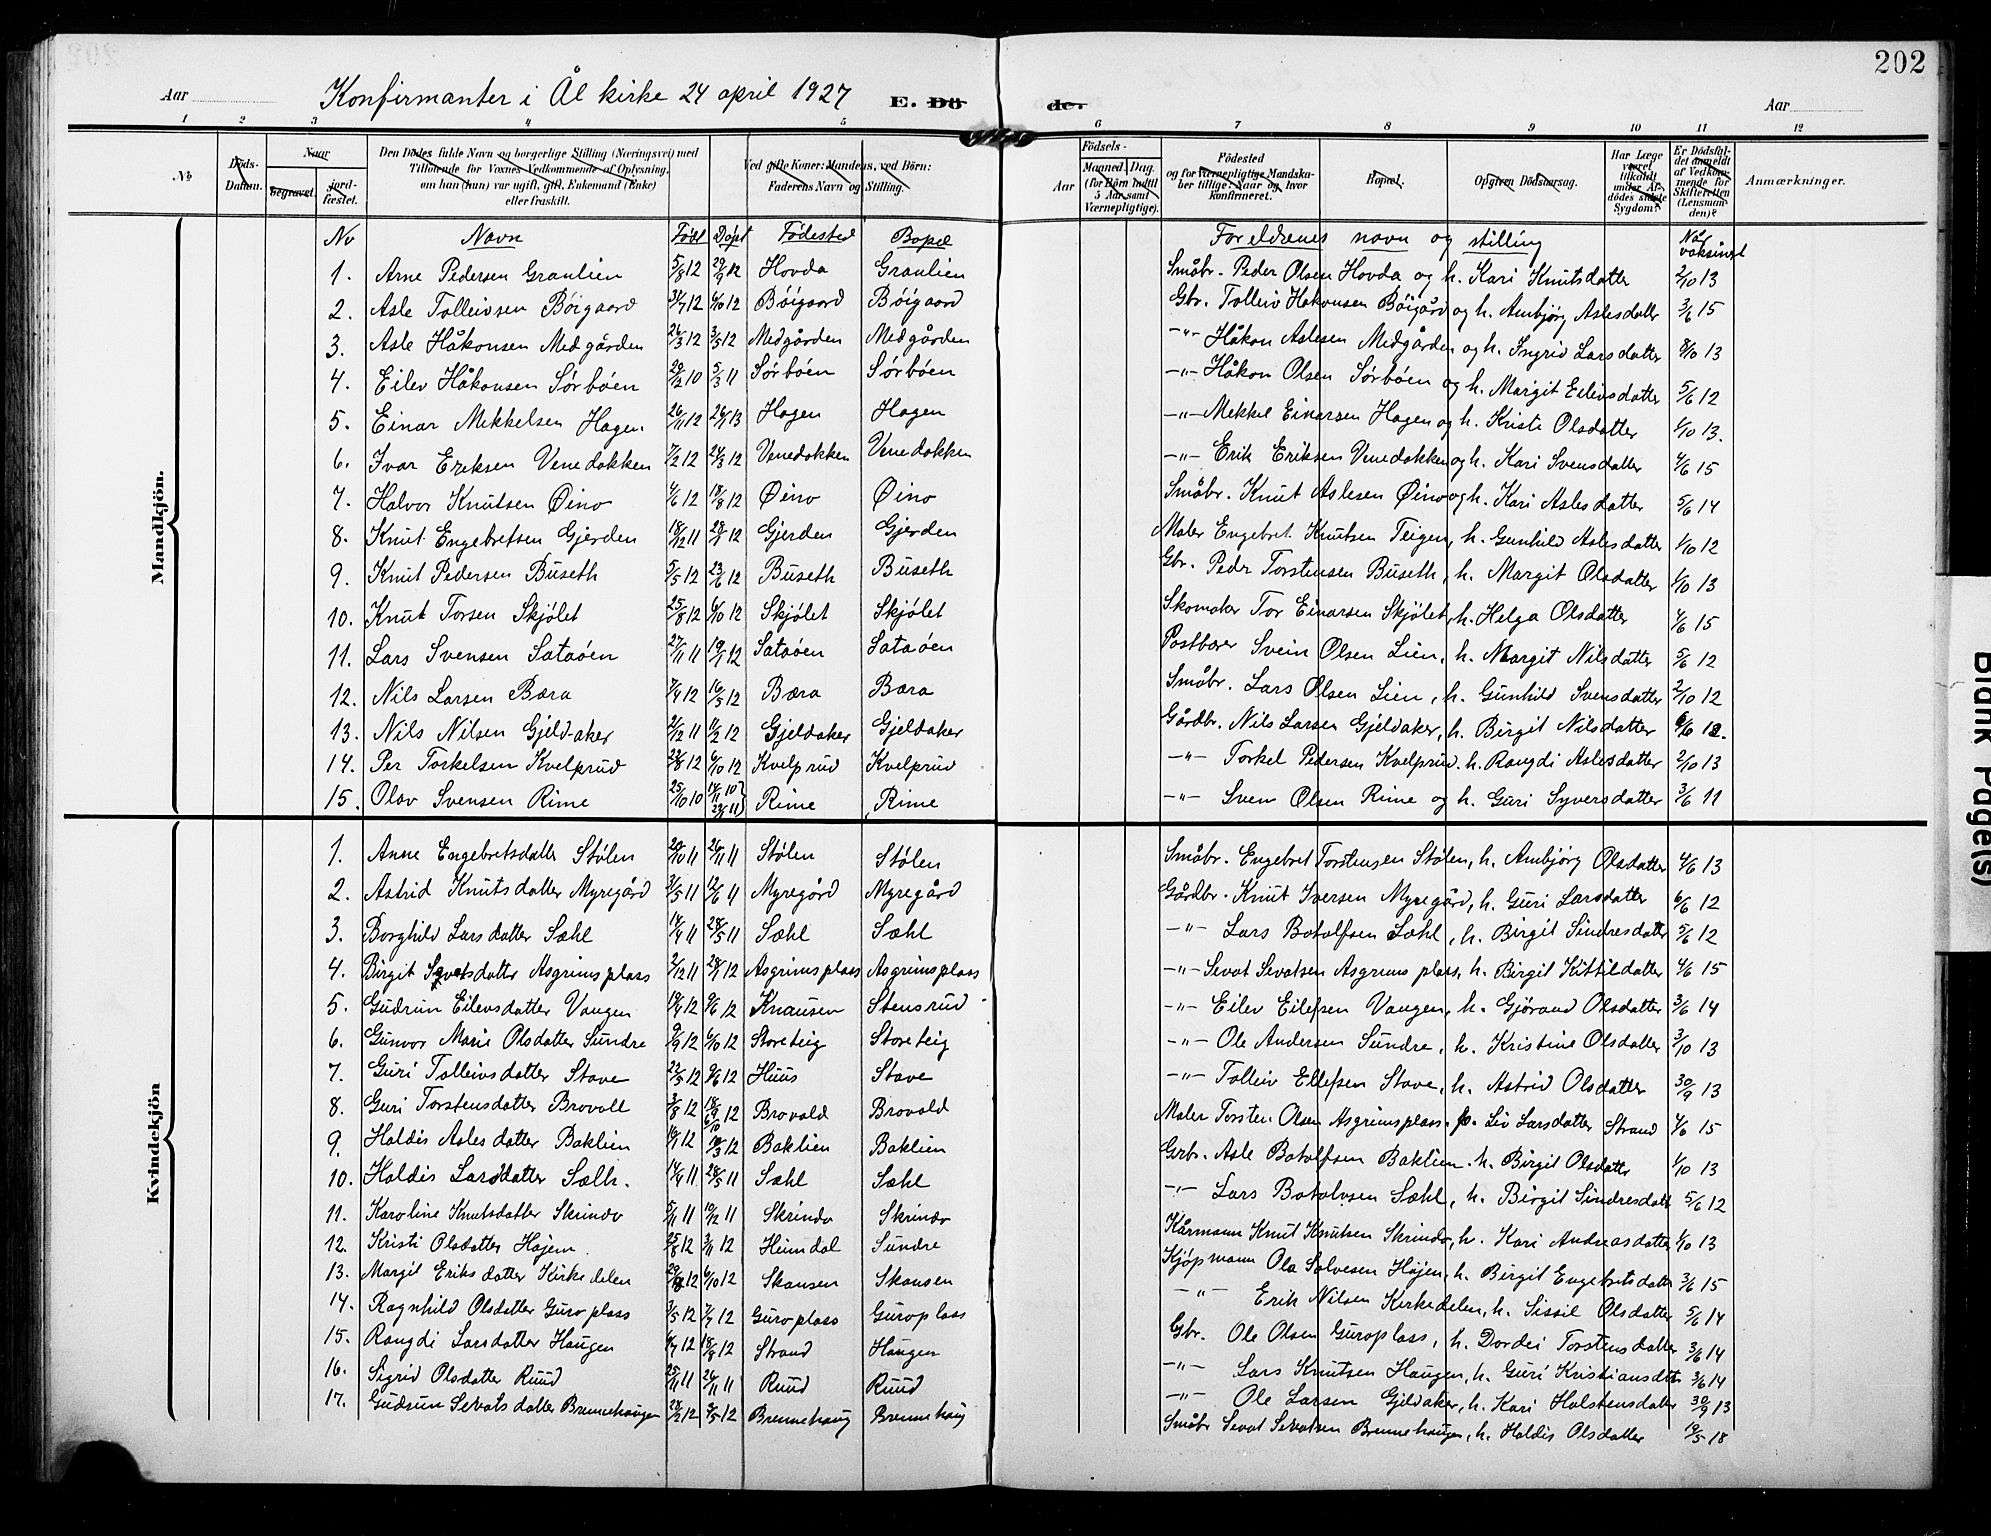 202
Aar
Konfirmanter i Ål kirke 24 april 1927
E. Dö
de.
Aar
1 2 3 4 5 6 7 8 9 10 11 12
№
Döds-
Datum.
Naar
begravet.
jord-
fæstet.
Den Dödes fulde Navn og borgerlige Stilling (Næringsvei) med
Tilföiende for Voxnes Vedkommende af Oplysning,
om han (hun) var ugift, gift, Enkemand (Enke)
eller fraskilt.
Ved gifte Koner: Mandens, ved Börn:
Faderens Navn og Stilling.
Födsels-
Aar
Maaned.
Dag.
(for Börn indtil
5 Aar samt
Værnepligtige).
Födested
og for værnepligtige Mandska-
ber tillige: Naar og hvor
konfirmeret.
Bopæl.
Opgiven Dödsaarsag.
Har Læge
været
tilkaldt
under Af-
dödes sidste
Sygdom?
Er Dödsfal-
det anmeldt
af Vedkom-
mende for
Skifteretten
(Lensman-
den)?
Anmærkninger.
Mandkjön.
No Navn Født Døpt Fødested Bopæl Foreldrenes navn og stilling Når vaksinert
1. Arne Pedersen Graulien 5/8 12 29/9 12 Hovda Graulien Småbr. Peder Olsen Hovda og h. Kari Knutsdatter 2/10 13
2. Asle Tolleivsen Böigaard 31/7 12 6/10 12 Böigaard Böigaard Gbr. Tolleiv Hakonsen Böigård og h. Ambjörg Aslesdatter 3/6 15
3. Asle Håkonsen Medgården 26/3 12 3/5 12 Medgården Medgården -"- Håkon Aslesen Medgården og h. Ingrid Larsdatter 8/10 13
4. Eilev Håkonsen Sørbøen 29/12 10 5/3 11 Sørbøen Sørbøen -"- Håkon Olsen Sørbøen og h. Margit Eilevsdatter 5/6 12
5. Einar Mekkelsen Hagen. 26/11 12 26/1 13 Hagen Hagen -"- Mekkel Einarsen Hagen og h. Kristi Olsdatter 1/10 13.
6. Ivar Eriksen Venedokken 7/2 12 24/3 12 Venedokken Venedokken -"- Erik Eriksen Venedokken og h. Kari Svensdatter 4/6 15
7. Halvor Knutsen Øino 4/6 12 18/8 12 Øino Øino Småbr. Knut Aslesen Øino og h. Kari Aslesdatter 5/6 14
8. Knut Engebretsen Gjerden 18/12 11 28/1 12 Gjerden Gjerden Maler Engebret Knutsen Teigen, h. Gunhild Aslesdatter 1/10 12
9. Knut Pedersen Buseth 5/5 12 23/6 12 Buseth Buseth Gbr. Peder Torstensen Buseth, h. Margit Olsdatter 1/10 13
10. Knut Torsen Skjølet 25/8 12 6/10 12 Skjølet Skjølet Skomaker Tor Einarsen Skjølet, h. Helga Olsdatter 4/6 15
11. Lars Svensen Sataøen 27/11 11 19/1 12 Sataøen Sataøen Postbærer Svein Olsen Lien, h. Margit Nilsdatter 5/6 12
12. Nils Larsen Bæra 7/4 12 16/5 12 Bæra Bæra Småbr. Lars Olsen Lien, h. Gunhild Svensdatter 2/10 12
13. Nils Nilsen Gjeldaker 21/12 11 11/2 12 Gjeldaker Gjeldaker Gårdbr. Nils Larsen Gjeldaker, h. Birgit Nilsdatter 6/6 12.
14. Per Torkelsen Kvelprud 22/8 12 6/10 12 Kvelprud Kvelprud -"- Torkel Pedersen Kvelprud. h. Rangdi Aslesdatter 2/10 13
15. Olav Svensen Rime 25/10 10 11/11 10 Rime Rime -"- Sven Olsen Rime og h. Guri Syversdatter 3/6 11
Kvindekjön
1. Anne Engebretsdatter Stølen 20/10 11 26/11 11 Stølen Stølen Småbr. Engebret Torstensen Stølen, h. Ambjörg Olsdatter 4/6 13
2. Astrid Knutsdatter Myregård 3/5 11 12/6 11 Myregård Myregård Gårdbr. Knut Iversen Myregård, h. Guri Larsdatter 6/6 12
3. Borghild Larsdatter Sæhl 14/4 11 28/5 11 Sæhl Sæhl -"- Lars Botolfsen Sæhl, h. Birgit Sindresdatt 5/6 12
4. Birgit Sevatsdatter Asgrimsplass 2/12 11 28/1 12 Asgrimsplass Asgrimsplass -"- Sevat Sevatsen Asgrimsplass, h. Birgit Kittildatter 4/6 15
5. Gudrun Eilevsdatter Vangen 19/4 12 9/6 12 Knausen Stensrud -"- Eilev Eilefsen Vangen, h. Gjörand Olsdatter 3/6 14
6. Gunvor Marie Olsdatter Sundre 9/9 12 6/10 12 Storeteig Storeteig -"- Ole Andersen Sundre, h. Kristine Olsdatter 3/10 13
7. Guri Tolleivsdatter Stave 22/5 12 9/6 12 Huus Stave -"- Tolleiv Ellefsen Stave, h. Astrid Olsdatter 30/9 13
8. Guri Torstensdatter Brovoll 3/8 12 18/9 12 Brovald Brovald Maler Torsten Olsen Asgrimsplass. Liv Larsdatter Strand 4/6 15
9. Haldis Aslesdatter Baklien 16/1 12 10/3 12 Baklien Baklien Grbr. Asle Botolfsen Baklien. h. Birgit Olsdatter 1/10 13
10. Haldis Larsdatter Sælh. 14/4 11 28/5 11 Sæhl Sæhl -"- Lars Botolvsen Sæhl, h. Birgit Sindresdatt 5/6 12
11. Karoline Knutsdatter Skrindo 5/11 11 10/12 11 Skrindo Skrindo Kårmann Knut Knutsen Skrindo, h. Kari Andreasdatter 1/10 13
12. Kristi Olsdatter Højem 25/8 12 3/11 12 Heimdal Sundre Kjöpmann Ola Solvesen Höjen, h. Birgit Engebretsdatter 3/6 15
13. Margit Eriksdatter Kirkedelen 29/8 12 6/10 12 Skansen Skansen -"- Erik Nilsen Kirkedelen, h. Sissil Olsdatter 5/6 14
14. Ragnhild Olsdatter Guroplass 3/5 12 7/7 12 Guroplass Guroplass Gbr. Ole Olsen Guroplass, h. Dordei Torstensdatter 3/6 14
15. Rangdi Larsdatter Haugen 4/7 12 18/8 12 Strand Haugen -"- Lars Knutsen Haugen, h. Guri Kristiansdtr 3/6 14
16. Sigrid Olsdatter Ruud 25/11 11 26/11 11 Ruud Ruud -"- Ole Larsen Gjeldaker, h. Kari Holstensdatter 30/9 13
17. Gudrun Sevatsdatter Brennehaugen 28/2 12 9/5 12 Brennehaug Brennehaug Småbr Sevat Sevatsen Brennehaugen, h. Haldis Olsdatter 19/5 18
Blank Page(s)